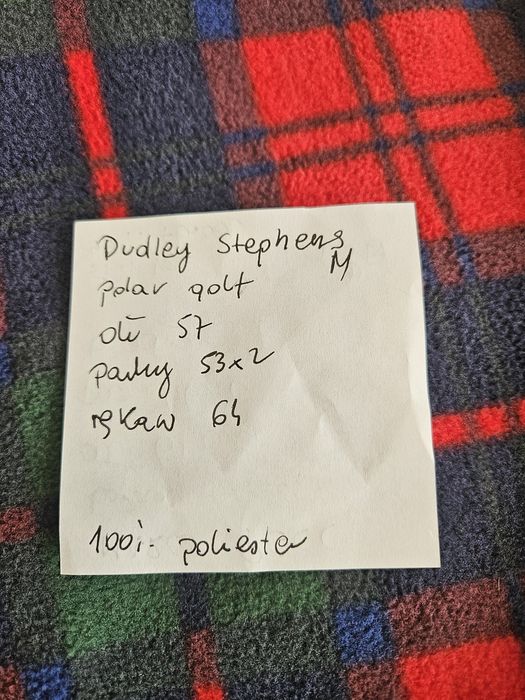 Dudley Stephens
M
polar golf
dł 57
pachy 53x2
rękaw 64
100% poliester